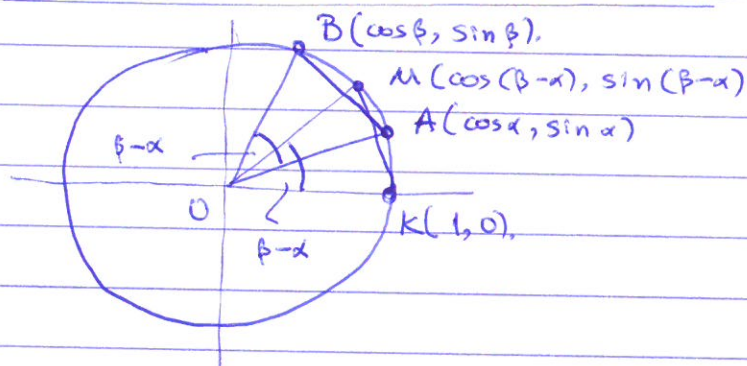 B(cosβ, sinβ).
M(cos(β-α), sin(β-α)
A(cosα, sinα)
β-α
O
K(1,0).
β-α